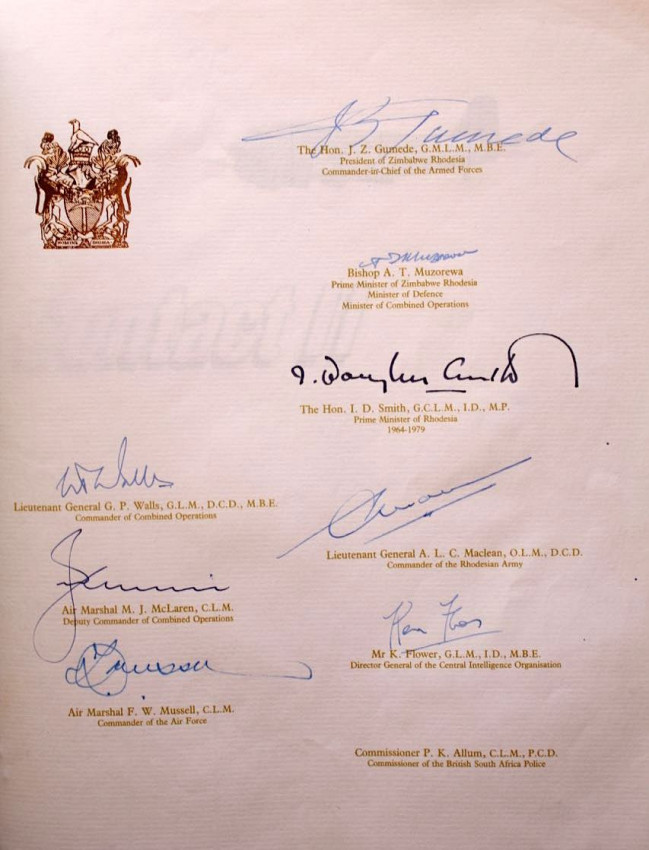 J Z Gumede
The Hon. J. Z. Gumede, G.M.L.M., M.B.E.
President of Zimbabwe Rhodesia
Commander-in-Chief of the Armed Forces
A T Muzorewa
Bishop A. T. Muzorewa
Prime Minister of Zimbabwe Rhodesia
Minister of Defence
Minister of Combined Operations
I. Douglas Smith
The Hon. I. D. Smith, G.C.L.M., I.D., M.P.
Prime Minister of Rhodesia
1964-1979
Walls
Lieutenant General G. P. Walls, G.L.M., D.C.D., M.B.E.
Commander of Combined Operations
Lieutenant General A. L. C. Maclean, O.L.M., D.C.D.
Commander of the Rhodesian Army
Air Marshal M. J. McLaren, C.L.M.
Deputy Commander of Combined Operations
Ken Flower
Mr K. Flower, G.L.M., I.D., M.B.E.
Director General of the Central Intelligence Organisation
Mussell
Air Marshal F. W. Mussell, C.L.M.
Commander of the Air Force
Commissioner P. K. Allum, C.L.M., P.C.D.
Commissioner of the British South Africa Police